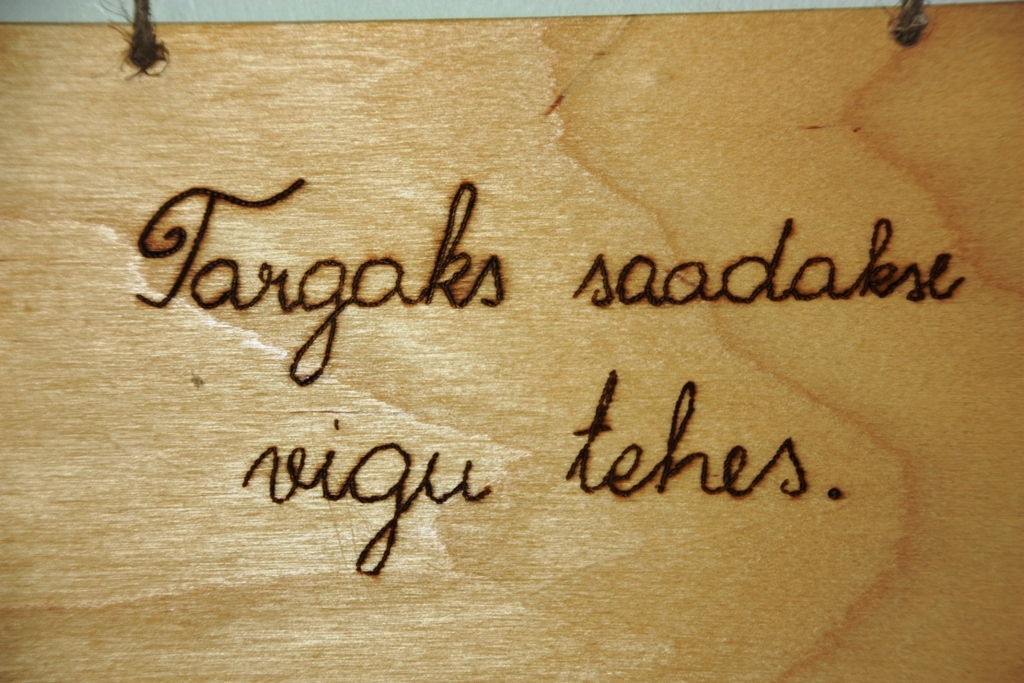 Targaks saadakse
vigu tehes.